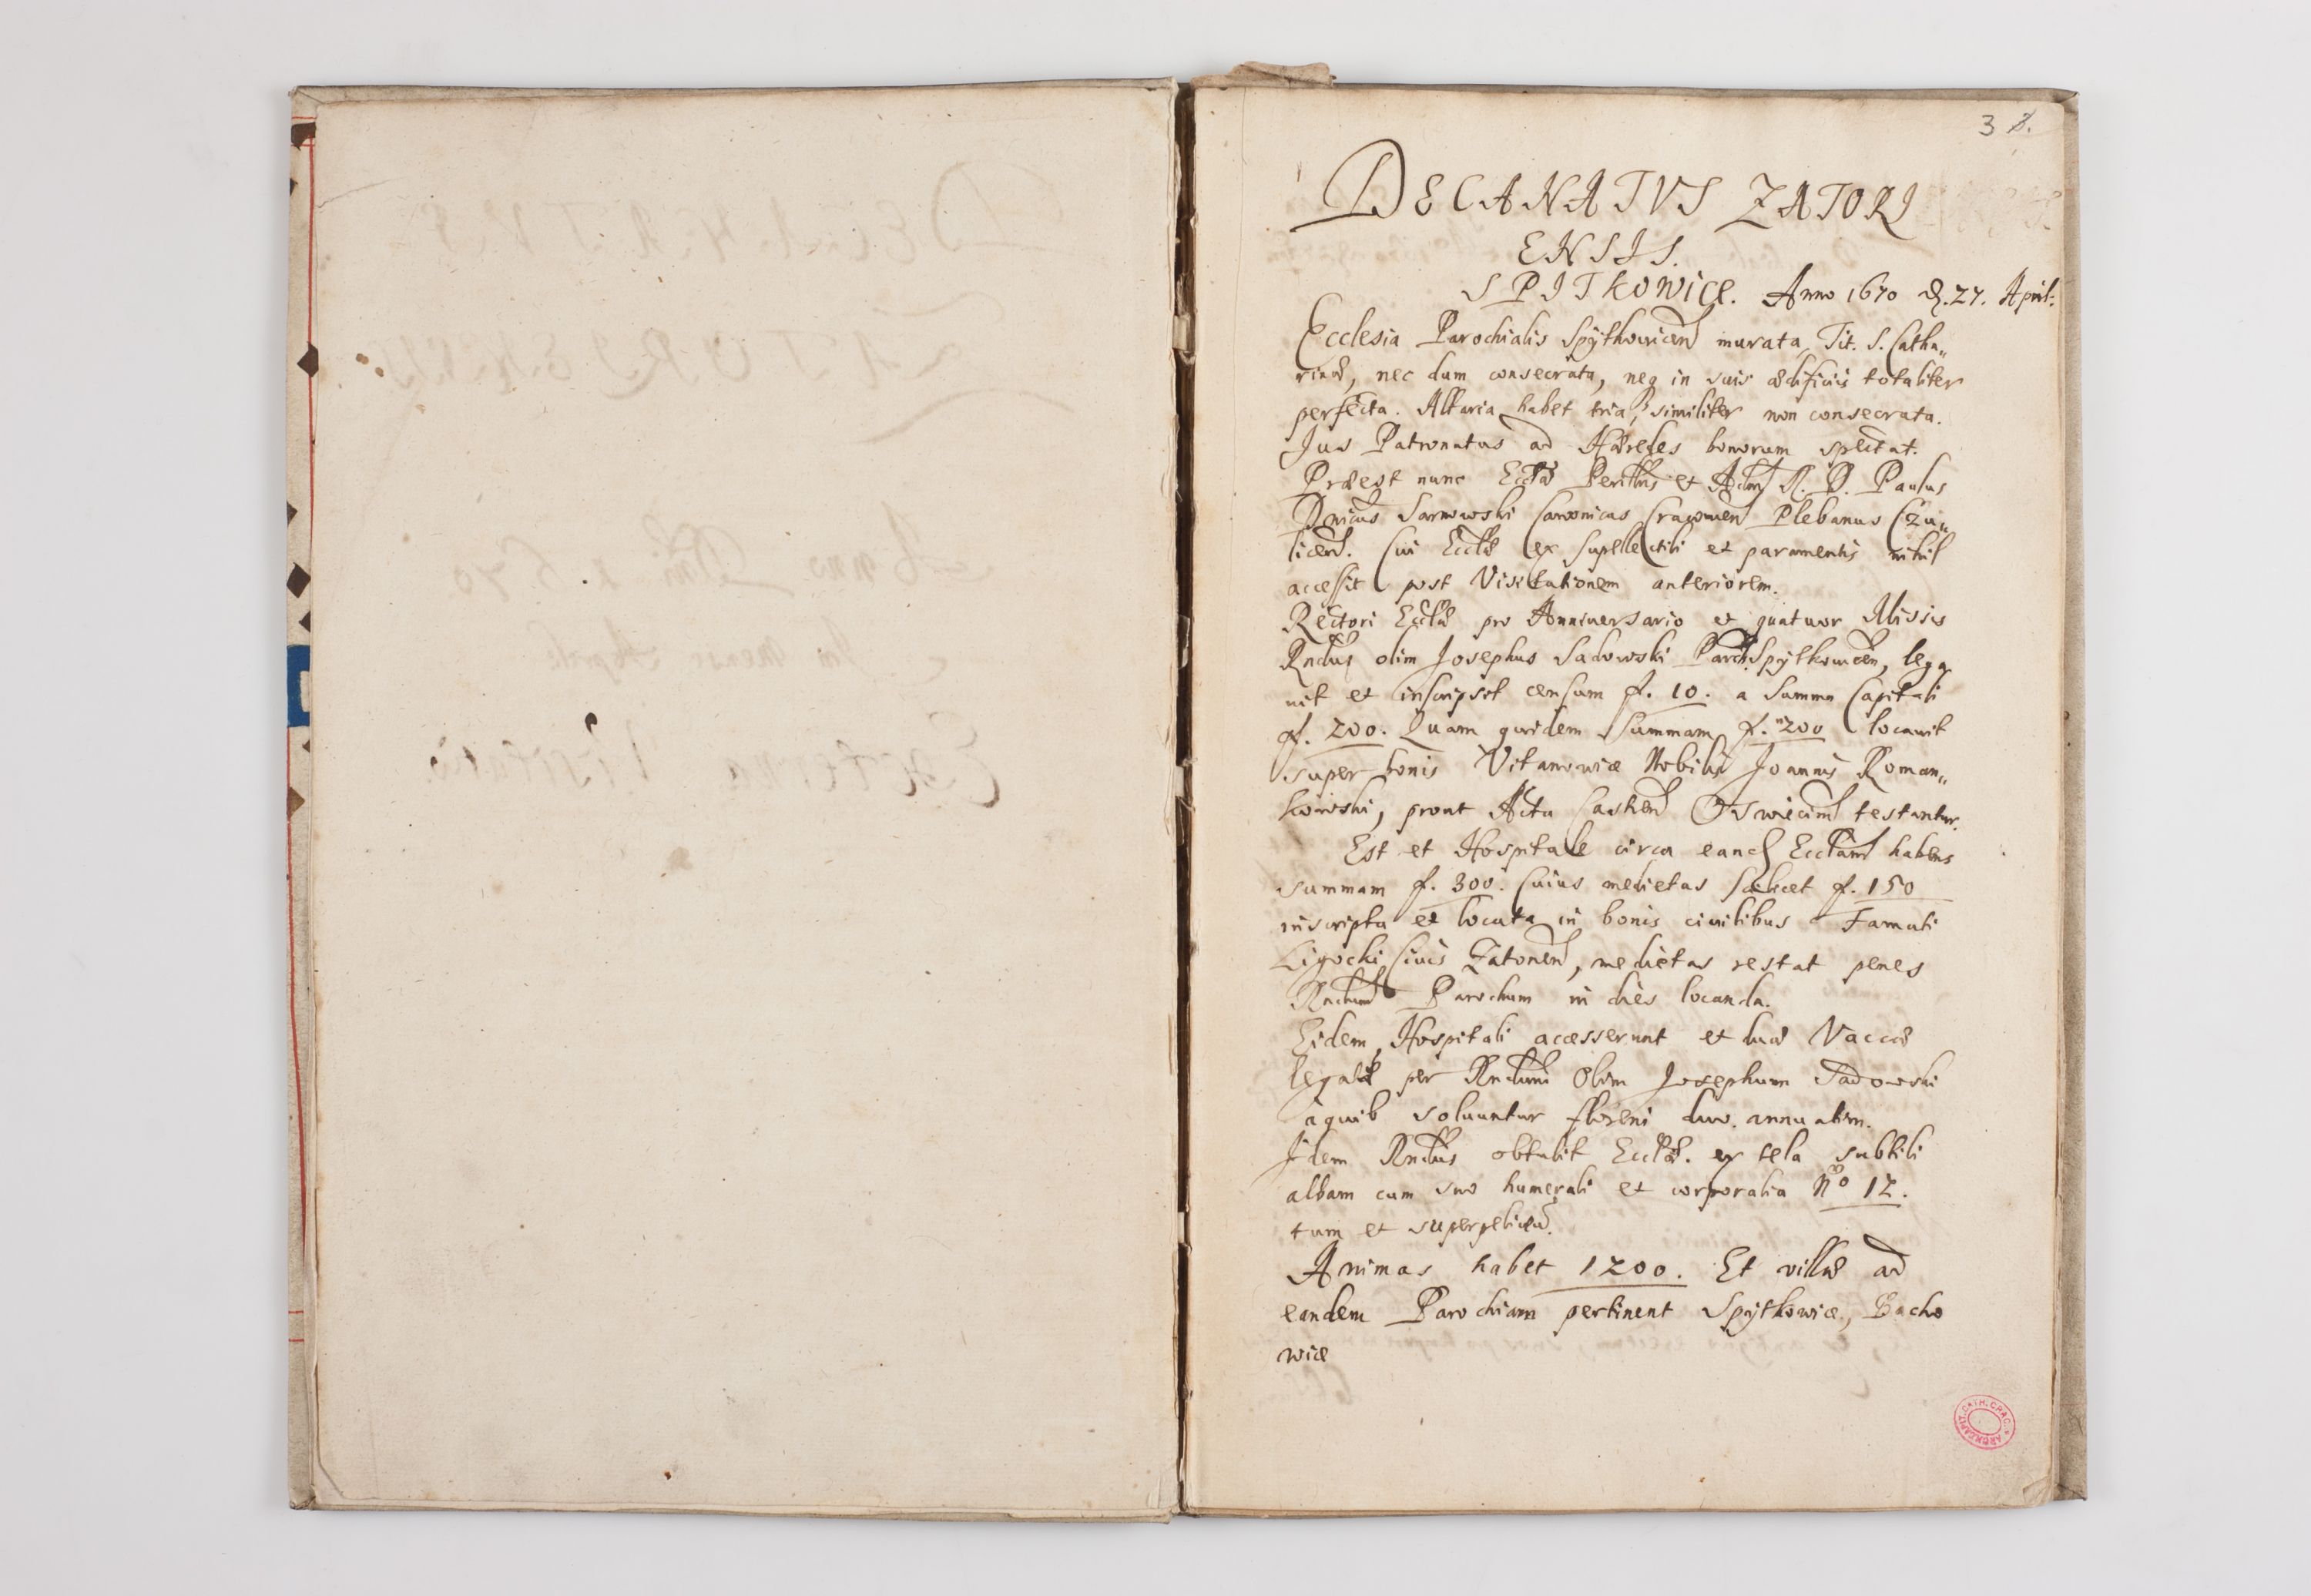 3 2.
DECANATVS ZATORI
ENSIS.
SPITKOWICE. Anno 1670 d. 27. April:
Ecclesia Parochialis Spytkouicen murata, Tit. S. Catha„
rinæ, nec dum consecrata, neq in suis ædificiis totaliter
perfecta. Altaria habet tria, similiter non consecrata.
Jus Patronatus ad Hæredes bonorum spectat.
Præest nunc Ecclæ Perillris et Adm R. D. Paulus
Dnicus Sarnowski Canonicus Cracouien Plebanus Czu„
licen. Cui Ecclæ ex supellectili et paramentis nihil
accessit post Visitationem anteriorem.
Rectori Ecclæ pro Anniuersario et quatuor Missis
Rndus olim Josephus Sadowski Paroch. Spytkouicen, lega
uit et inscripsit censum f. 10. a summa Capitali
f. 200. Quam quidem summam f. 200 locauit
super bonis Vitanowicæ Nobilis Joannis Roman„
kowski, prout Acta Castren Oswiecim testantur.
Est et Hospitale circa eand Ecclam habens
summam f. 300. Cuius medietas scilicet f. 150
inscripta et locata in bonis ciuilibus Famati
Ligocki Ciuis Zatorien, medietas restat penes
Rndum Parochum in dies locanda.
Eidem Hospitali accesserunt et duæ Vaccæ
legatæ per Rndum Olim Josephum Sadowski
a quib soluuntur floreni duo. annuatim.
Idem Rndus obtulit Ecclæ. ex tela subtili
albam cum suo humerali et corporalia No 12.
tum et superpeliceũ.
Animas habet 1200. Et villæ ad
eandem Parochiam pertinent Spytkowice, Bacho
wice
ARCH. CAPIT. CATH. CRAC.